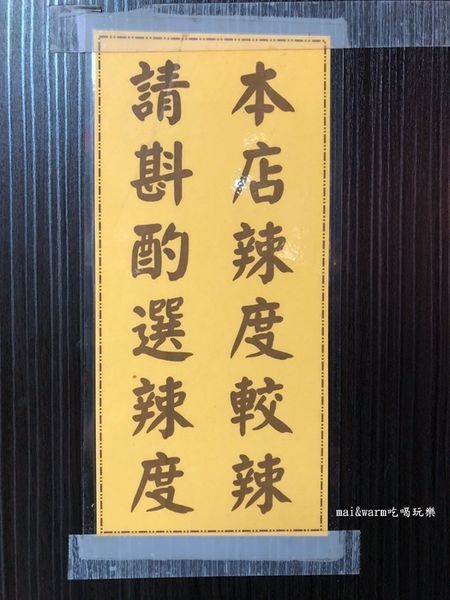 本店辣度較辣
請斟酌選辣度
mai&warm吃喝玩樂